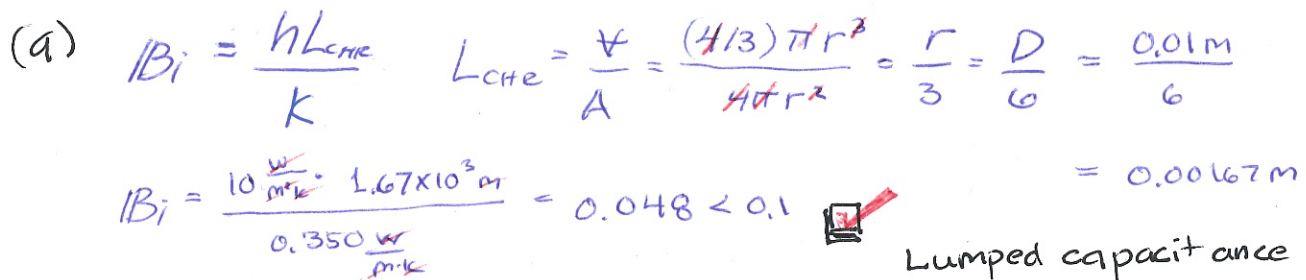 (a) Bi = hLCHR / K LCHe = V / A = (4/3) π r³ / 4 π r² = r / 3 = D / 6 = 0.01m / 6
= 0.00167m
Bi = 10 W/m²K · 1.67x10³ m / 0.350 W/m·K = 0.048 < 0.1
Lumped capacitance